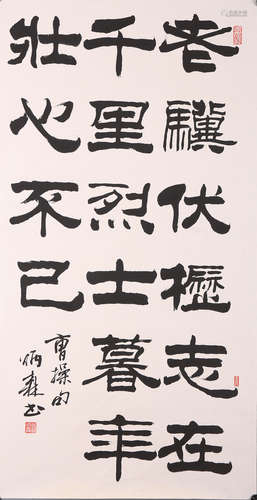 老驥伏櫪志在
千里烈士暮年
壯心不已
曹操句
炳森书